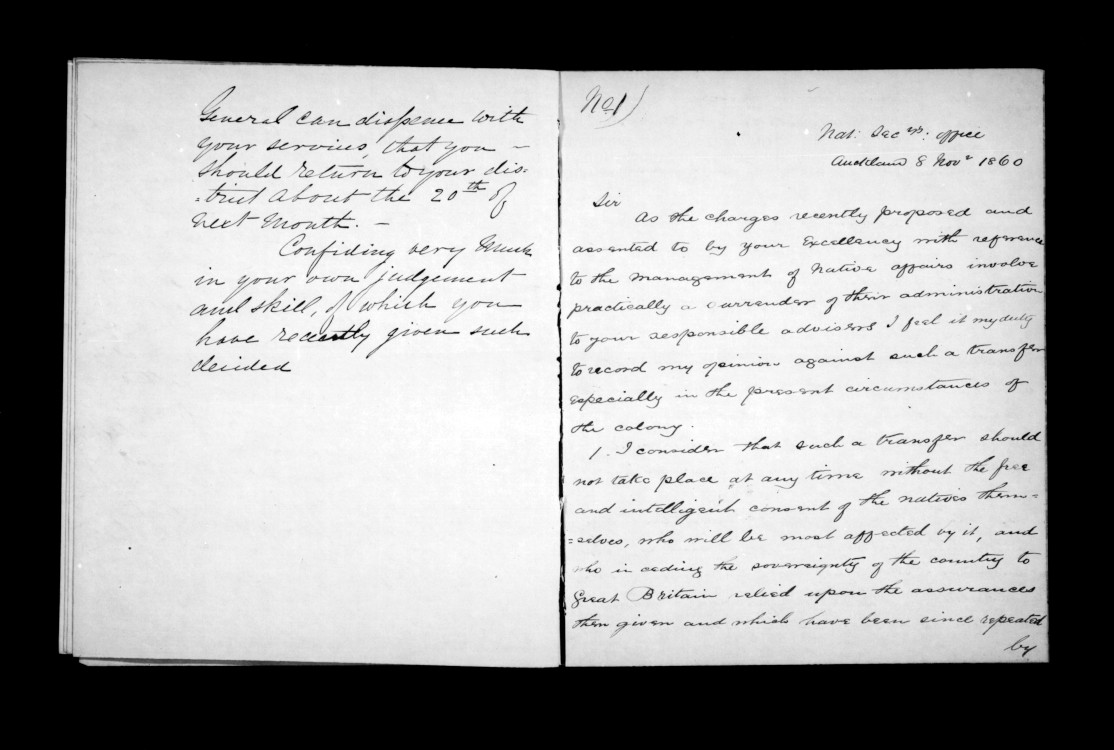 General can dispence with
your services, that you —
should return to your dis:
:trict about the 20th of
next month. —
Confiding very much
in your own judgement
and skill, of which you
have recently given such
decided
No 1)
Nat: Secys: office
Auckland 8 Novr 1860
Sir
As the charges recently proposed and
assented to by your Excellency with reference
to the management of Native affairs involve
practically a surrender of their administration
to your responsible advisers I feel it my duty
to record my opinion against such a transfer
especially in the present circumstances of
the colony.
1. I consider that such a transfer should
not take place at any time without the free
and intelligent consent of the natives them=
=selves, who will be most affected by it, and
who in ceding the sovereignty of the country to
Great Britain relied upon the assurances
then given and which have been since repeated
by